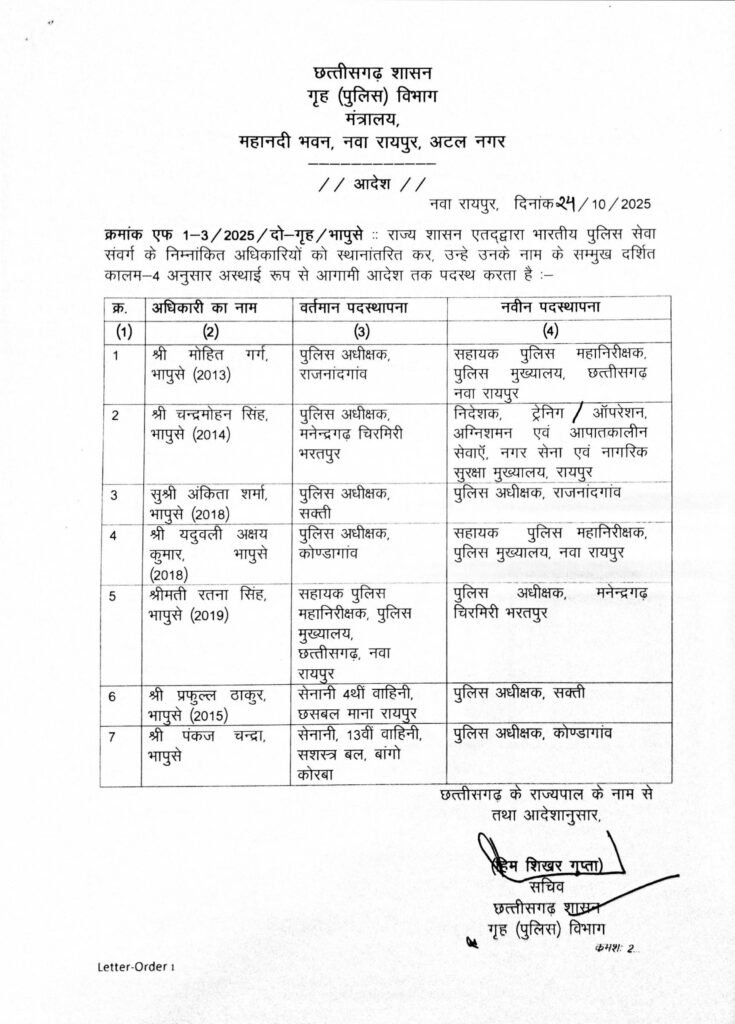 छत्तीसगढ़ शासन
गृह (पुलिस) विभाग
मंत्रालय,
महानदी भवन, नवा रायपुर, अटल नगर
// आदेश //
नवा रायपुर, दिनांक 24/10/2025
क्रमांक एफ 1–3/2025/दो–गृह/भापुसे :: राज्य शासन एतद्द्वारा भारतीय पुलिस सेवा
संवर्ग के निम्नांकित अधिकारियों को स्थानांतरित कर, उन्हे उनके नाम के सम्मुख दर्शित
कालम–4 अनुसार अस्थाई रूप से आगामी आदेश तक पदस्थ करता है :–
क्र. अधिकारी का नाम वर्तमान पदस्थापना नवीन पदस्थापना
(1) (2) (3) (4)
1 श्री मोहित गर्ग, पुलिस अधीक्षक, सहायक पुलिस महानिरीक्षक,
भापुसे (2013) राजनांदगांव पुलिस मुख्यालय, छत्तीसगढ़
नवा रायपुर
2 श्री चन्द्रमोहन सिंह, पुलिस अधीक्षक, निदेशक, ट्रेनिग / ऑपरेशन,
भापुसे (2014) मनेन्द्रगढ़ चिरमिरी अग्निशमन एवं आपातकालीन
भरतपुर सेवाऍ, नगर सेना एवं नागरिक
सुरक्षा मुख्यालय, रायपुर
3 सुश्री अंकिता शर्मा, पुलिस अधीक्षक, पुलिस अधीक्षक, राजनांदगांव
भापुसे (2018) सक्ती
4 श्री यदुवली अक्षय पुलिस अधीक्षक, सहायक पुलिस महानिरीक्षक,
कुमार, भापुसे कोण्डागांव पुलिस मुख्यालय, नवा रायपुर
(2018)
5 श्रीमती रतना सिंह, सहायक पुलिस पुलिस अधीक्षक, मनेन्द्रगढ़
भापुसे (2019) महानिरीक्षक, पुलिस चिरमिरी भरतपुर
मुख्यालय,
छत्तीसगढ़, नवा
रायपुर
6 श्री प्रफुल्ल ठाकुर, सेनानी 4थीं वाहिनी, पुलिस अधीक्षक, सक्ती
भापुसे (2015) छसबल माना रायपुर
7 श्री पंकज चन्द्रा, सेनानी, 13वीं वाहिनी, पुलिस अधीक्षक, कोण्डागांव
भापुसे सशस्त्र बल, बांगो
कोरबा
छत्तीसगढ़ के राज्यपाल के नाम से
तथा आदेशानुसार,
(हिम शिखर गुप्ता)
सचिव
छत्तीसगढ़ शासन
गृह (पुलिस) विभाग
क्मशः 2...
Letter-Order 1